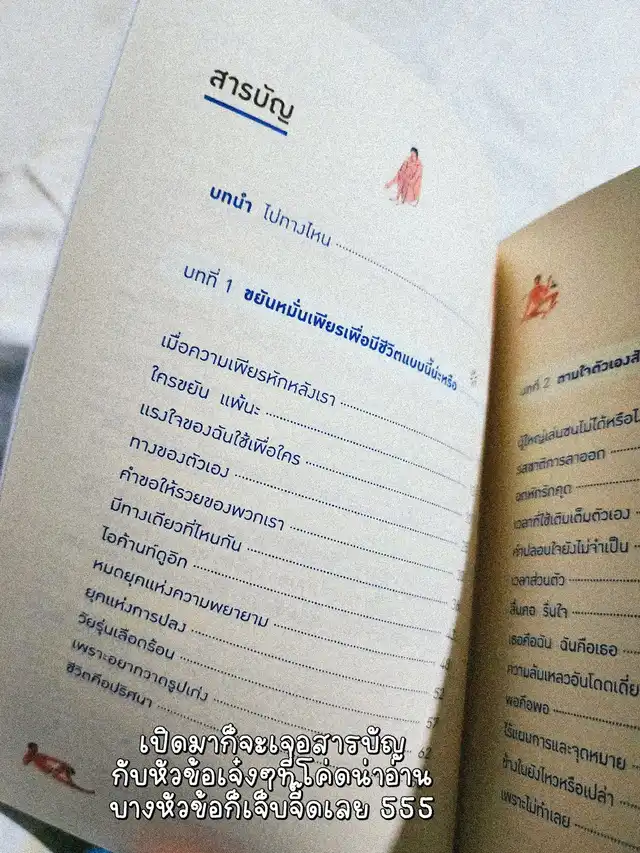 สารบัญ
บทนำ ไปทางไหน
บทที่ 1 ขยันหมั่นเพียรเพื่อมีชีวิตแบบนี้น่ะหรือ
เมื่อความเพียรหักหลังเรา
ใครขยัน แพ้นะ
แรงใจของฉันใช้เพื่อใคร
ทางของตัวเอง
คำขอให้รวยของพวกเรา
มีทางเดียวที่ไหนกัน
ไอค้านท์ดูอิท
หมดยุคแห่งความพยายาม
ยุคแห่งการปลง
วัยรุ่นเลือดร้อน
เพราะอยากวาดรูปเก่ง
ชีวิตคือปริศนา
52
57
62
บทที่ 2 ตามใจตัวเอง
ผู้ใหญ่เล่นซนไม่ได้หรือ
รสชาติการลาออก
อกหักรักคุด
เวลาที่ใช้เติมเต็มตัวเอง
คำปลอบใจยังไม่จำเป็น
เวลาส่วนตัว
ลื่นคอ รื่นใจ
เธอคือฉัน ฉันคือเธอ
ความล้มเหลวอันโดดเดี่ย
พอคือพอ
ไร้แผนการและจุดหมาย
ข้างในยังไหวหรือเปล่า
เพราะไม่ทำเลย
เปิดมาก็จะเจอสารบัญ
กับหัวข้อเจ๋งๆที่โค่ดน่าอ่าน
บางหัวข้อก็เจ็บจี๊ดเลย 555